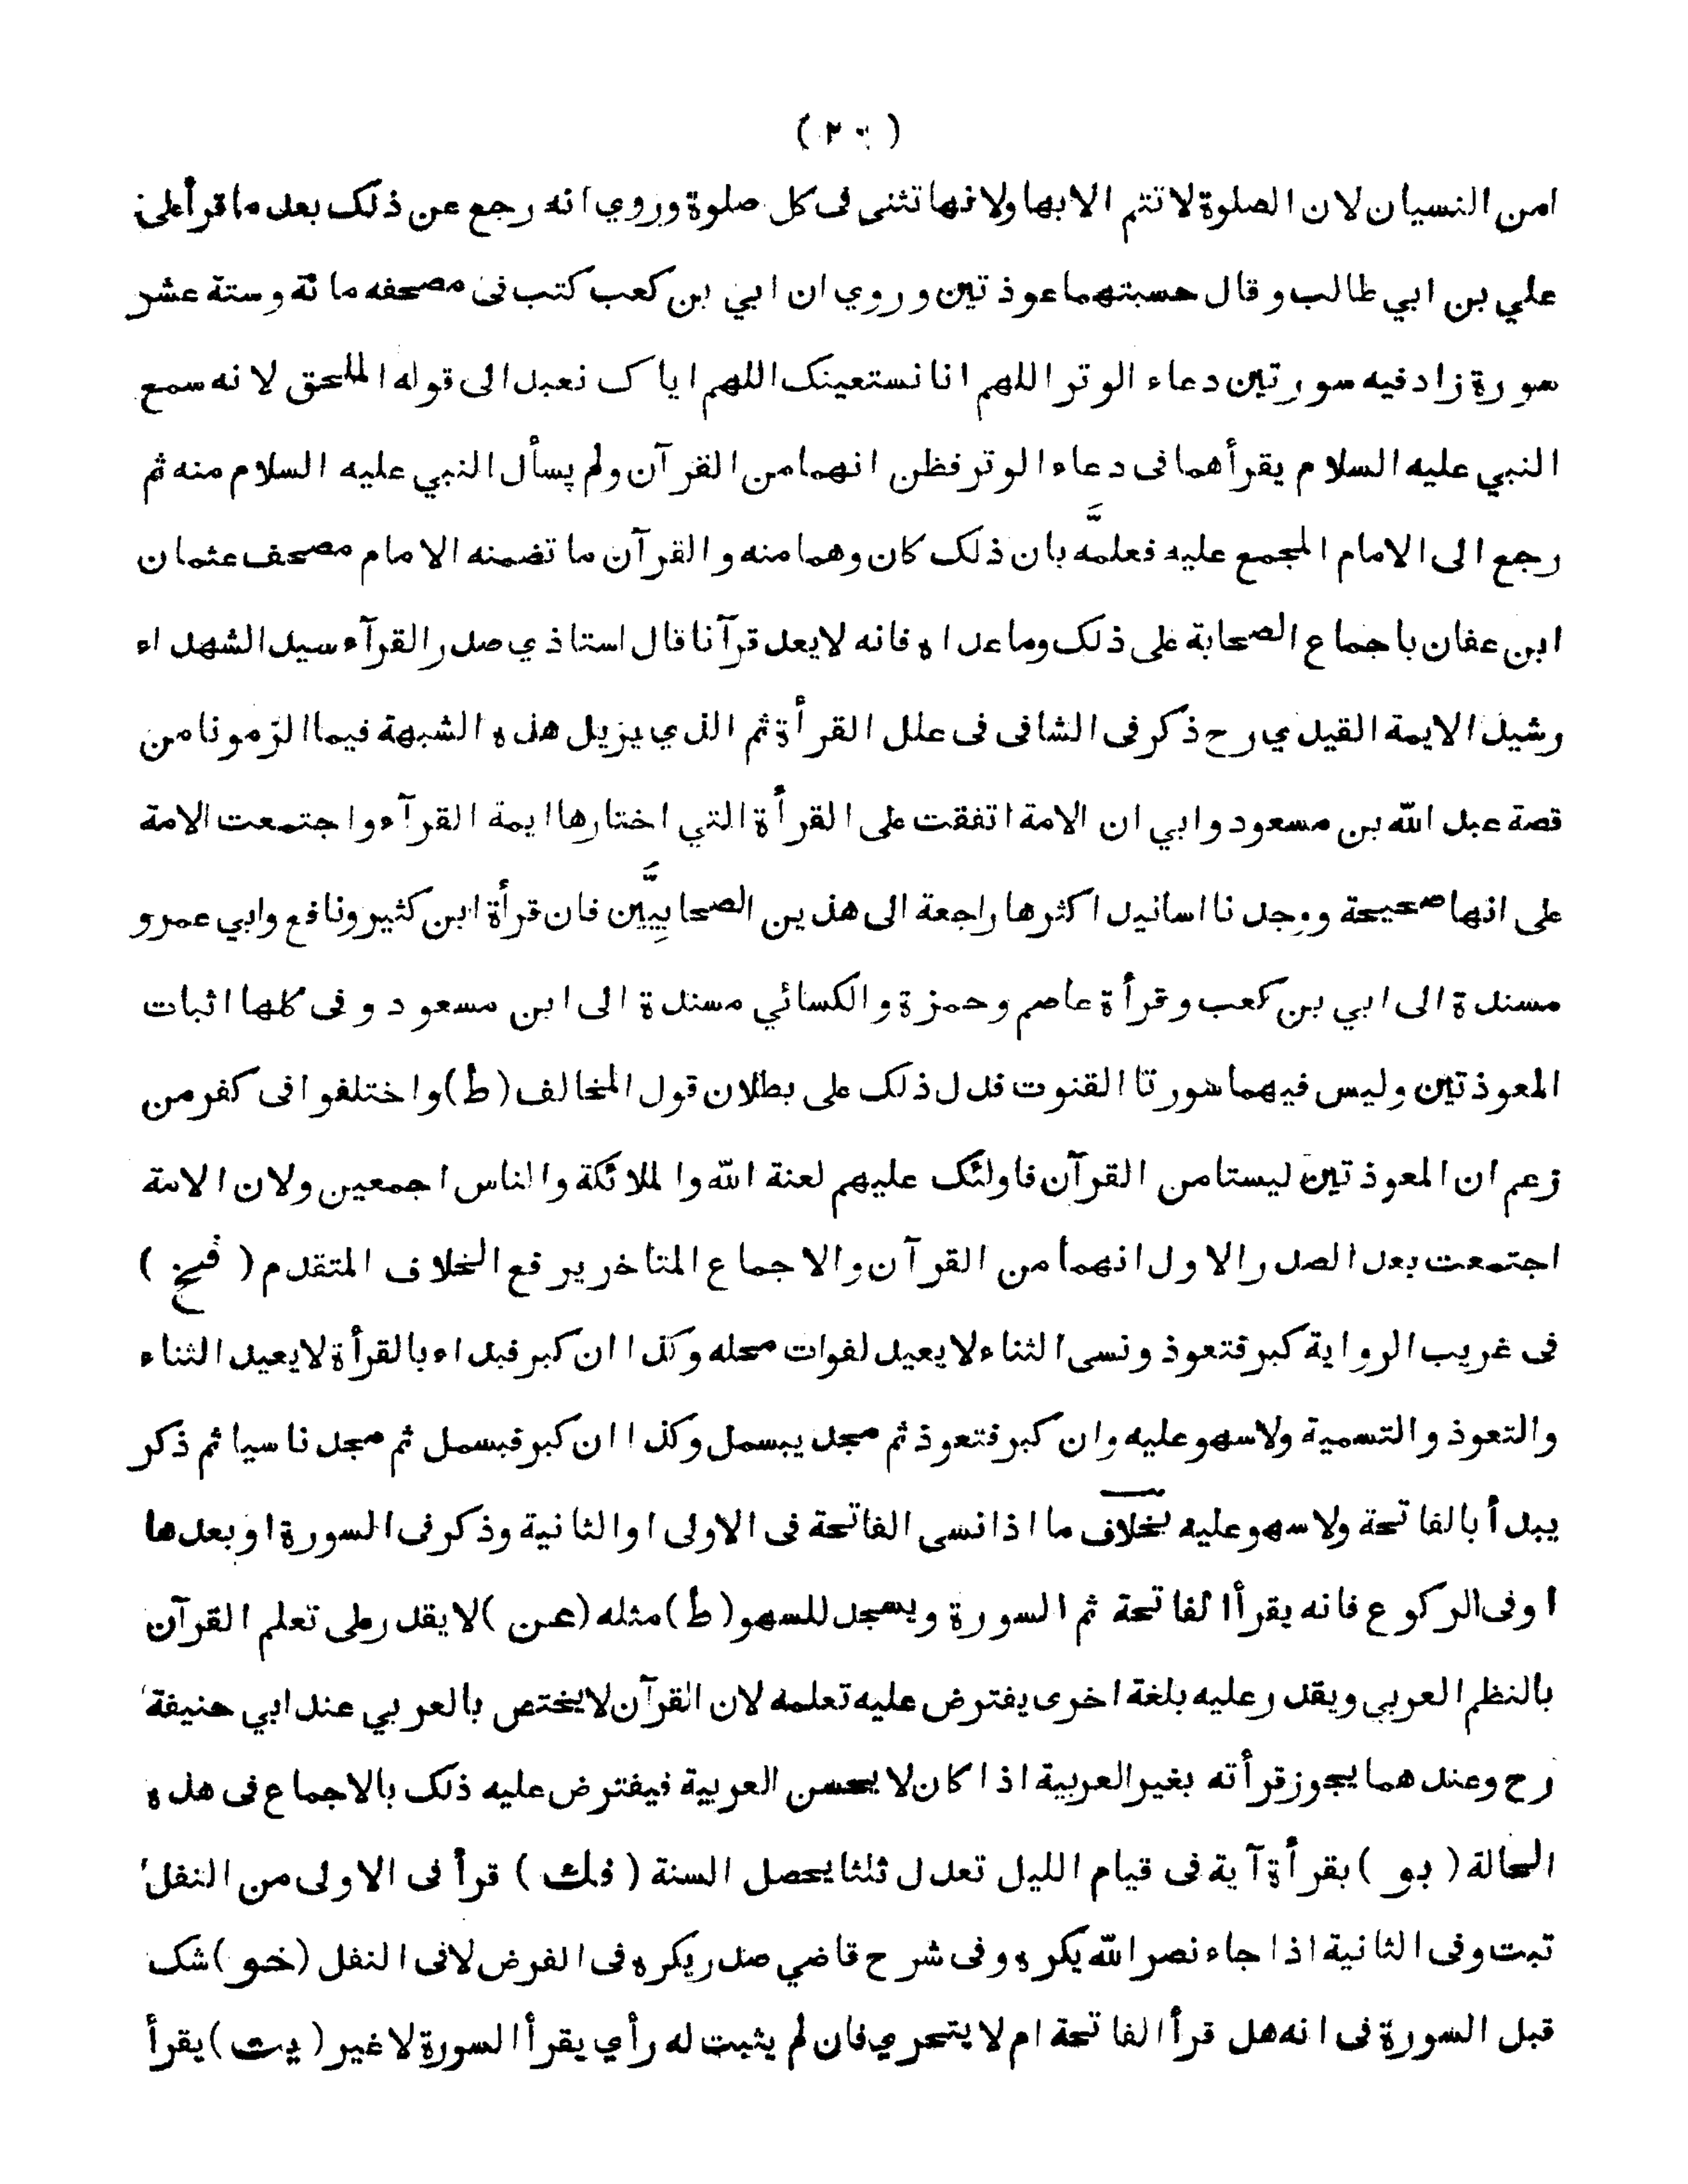 امن النسيان لان الصلوة لا تتم الا بها ولا نها تثنى فى كل صلوة وروي انه رجع عن ذلك بعد ما قرأ على
علي بن ابي طالب وقال حسبتهما عوذ تين وروي ان ابي بن كعب كتب فى مصحفه مائة وستة عشر
سورة زاد فيه سورتين دعاء الوتر اللهم انا نستعينك اللهم اياك نعبد الى قوله الملحق لانه سمع
النبي عليه السلام يقرأهما فى دعاء الوتر فظن انهما من القرآن ولم يسأل النبي عليه السلام منه ثم
رجع الى الامام المجمع عليه فعلمه بان ذلك كان وهما منه والقرآن ما تضمنه الامام مصحف عثمان
ابن عفان باجماع الصحابة على ذلك وما عداه فانه لا يعد قرآنا قال استاذي صدر القرآء سيد الشهداء
رشيد الايمة القيدي رح ذكر فى الشافى فى علل القرأة ثم الذي يزيل هذه الشبهة فيما الزمونا من
قصة عبد الله بن مسعود وابي ان الامة اتفقت على القرأة التي اختارها ايمة القرآء واجتمعت الامة
على انها صحيحة ووجدنا اسانيد اكثرها راجعة الى هذين الصحابيين فان قرأة ابن كثير ونافع وابي عمرو
مسندة الى ابي بن كعب وقرأة عاصم وحمزة والكسائي مسندة الى ابن مسعود وفى كلها اثبات
المعوذتين وليس فيهما سورتا القنوت فدل ذلك على بطلان قول المخالف (ط) واختلفوا فى كفر من
زعم ان المعوذتين ليستا من القرآن فاولئك عليهم لعنة الله والملائكة والناس اجمعين ولان الامة
اجتمعت بعد الصدر الاول انهما من القرآن والاجماع المتاخر يرفع الخلاف المتقدم ( فخ )
فى غريب الرواية كبر فتعوذ ونسى الثناء لا يعيد لفوات محله وكذا ان كبر فبداء بالقرأة لا يعيد الثناء
والتعوذ والتسمية ولا سهو عليه وان كبر فتعوذ ثم سجد يبسمل وكذا ان كبر فبسمل ثم سجد ناسيا ثم ذكر
يبدأ بالفاتحة ولا سهو عليه بخلاف ما اذا نسى الفاتحة فى الاولى او الثانية وذكر فى السورة او بعدها
او فى الركوع فانه يقرأ الفاتحة ثم السورة ويسجد للسهو (ط) مثله (عن) لا يقدر على تعلم القرآن
بالنظم العربي ويقدر عليه بلغة اخرى يفترض عليه تعلمه لان القرآن لا يختص بالعربي عند ابي حنيفة
رح وعندهما يجوز قرأته بغير العربية اذا كان لا يحسن العربية فيفترض عليه ذلك بالاجماع فى هذه
الحالة ( بو ) بقرأة آية فى قيام الليل تعدل ثلثا يحصل السنة ( فك ) قرأ فى الاولى من النفل
تبت وفى الثانية اذا جاء نصر الله يكره وفى شرح قاضي صدر يكره فى الفرض لا فى النفل (خو) شك
قبل السورة فى انه هل قرأ الفاتحة ام لا يتحري فان لم يثبت له رأي يقرأ السورة لا غير ( يت ) يقرأ